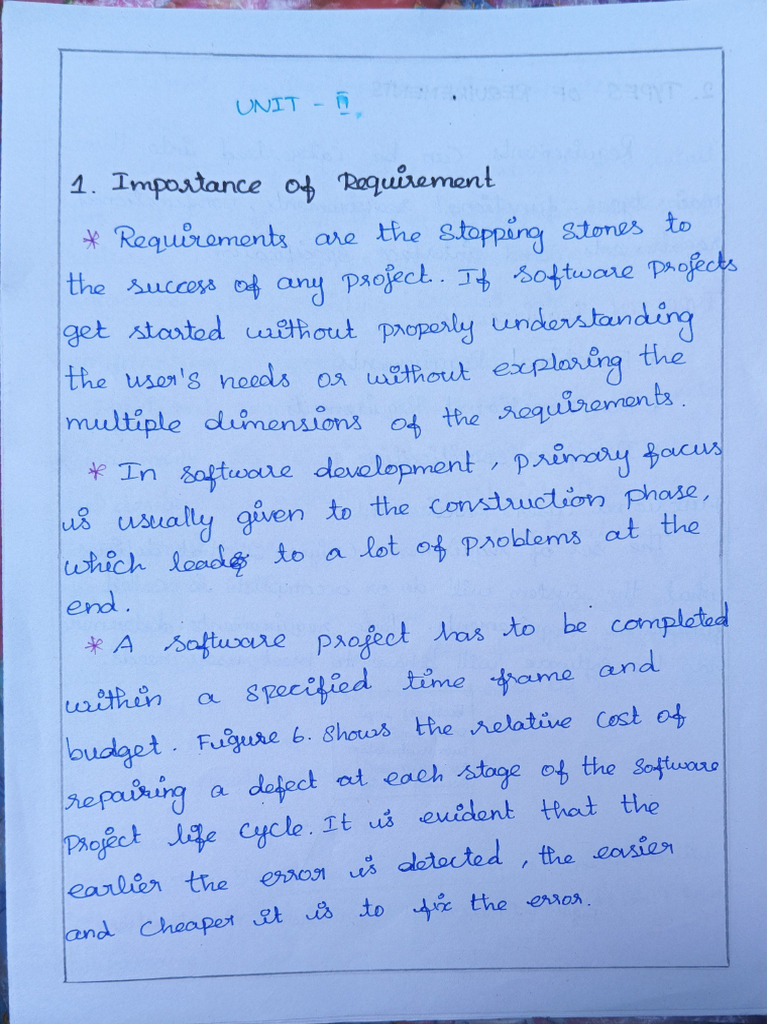 UNIT - II.
1. Importance of Requirement
* Requirements are the stepping stones to
the success of any project. If software projects
get started without properly understanding
the user's needs or without exploring the
multiple dimensions of the requirements.
* In software development, primary facus
is usually given to the construction phase,
which leads to a lot of problems at the
end.
* A software project has to be completed
within a specified time frame and
budget. Figure 6. Shows the relative cost of
repairing a defect at each stage of the software
Project life cycle. It is evident that the
earlier the error is detected, the easier
and cheaper it is to fix the error.